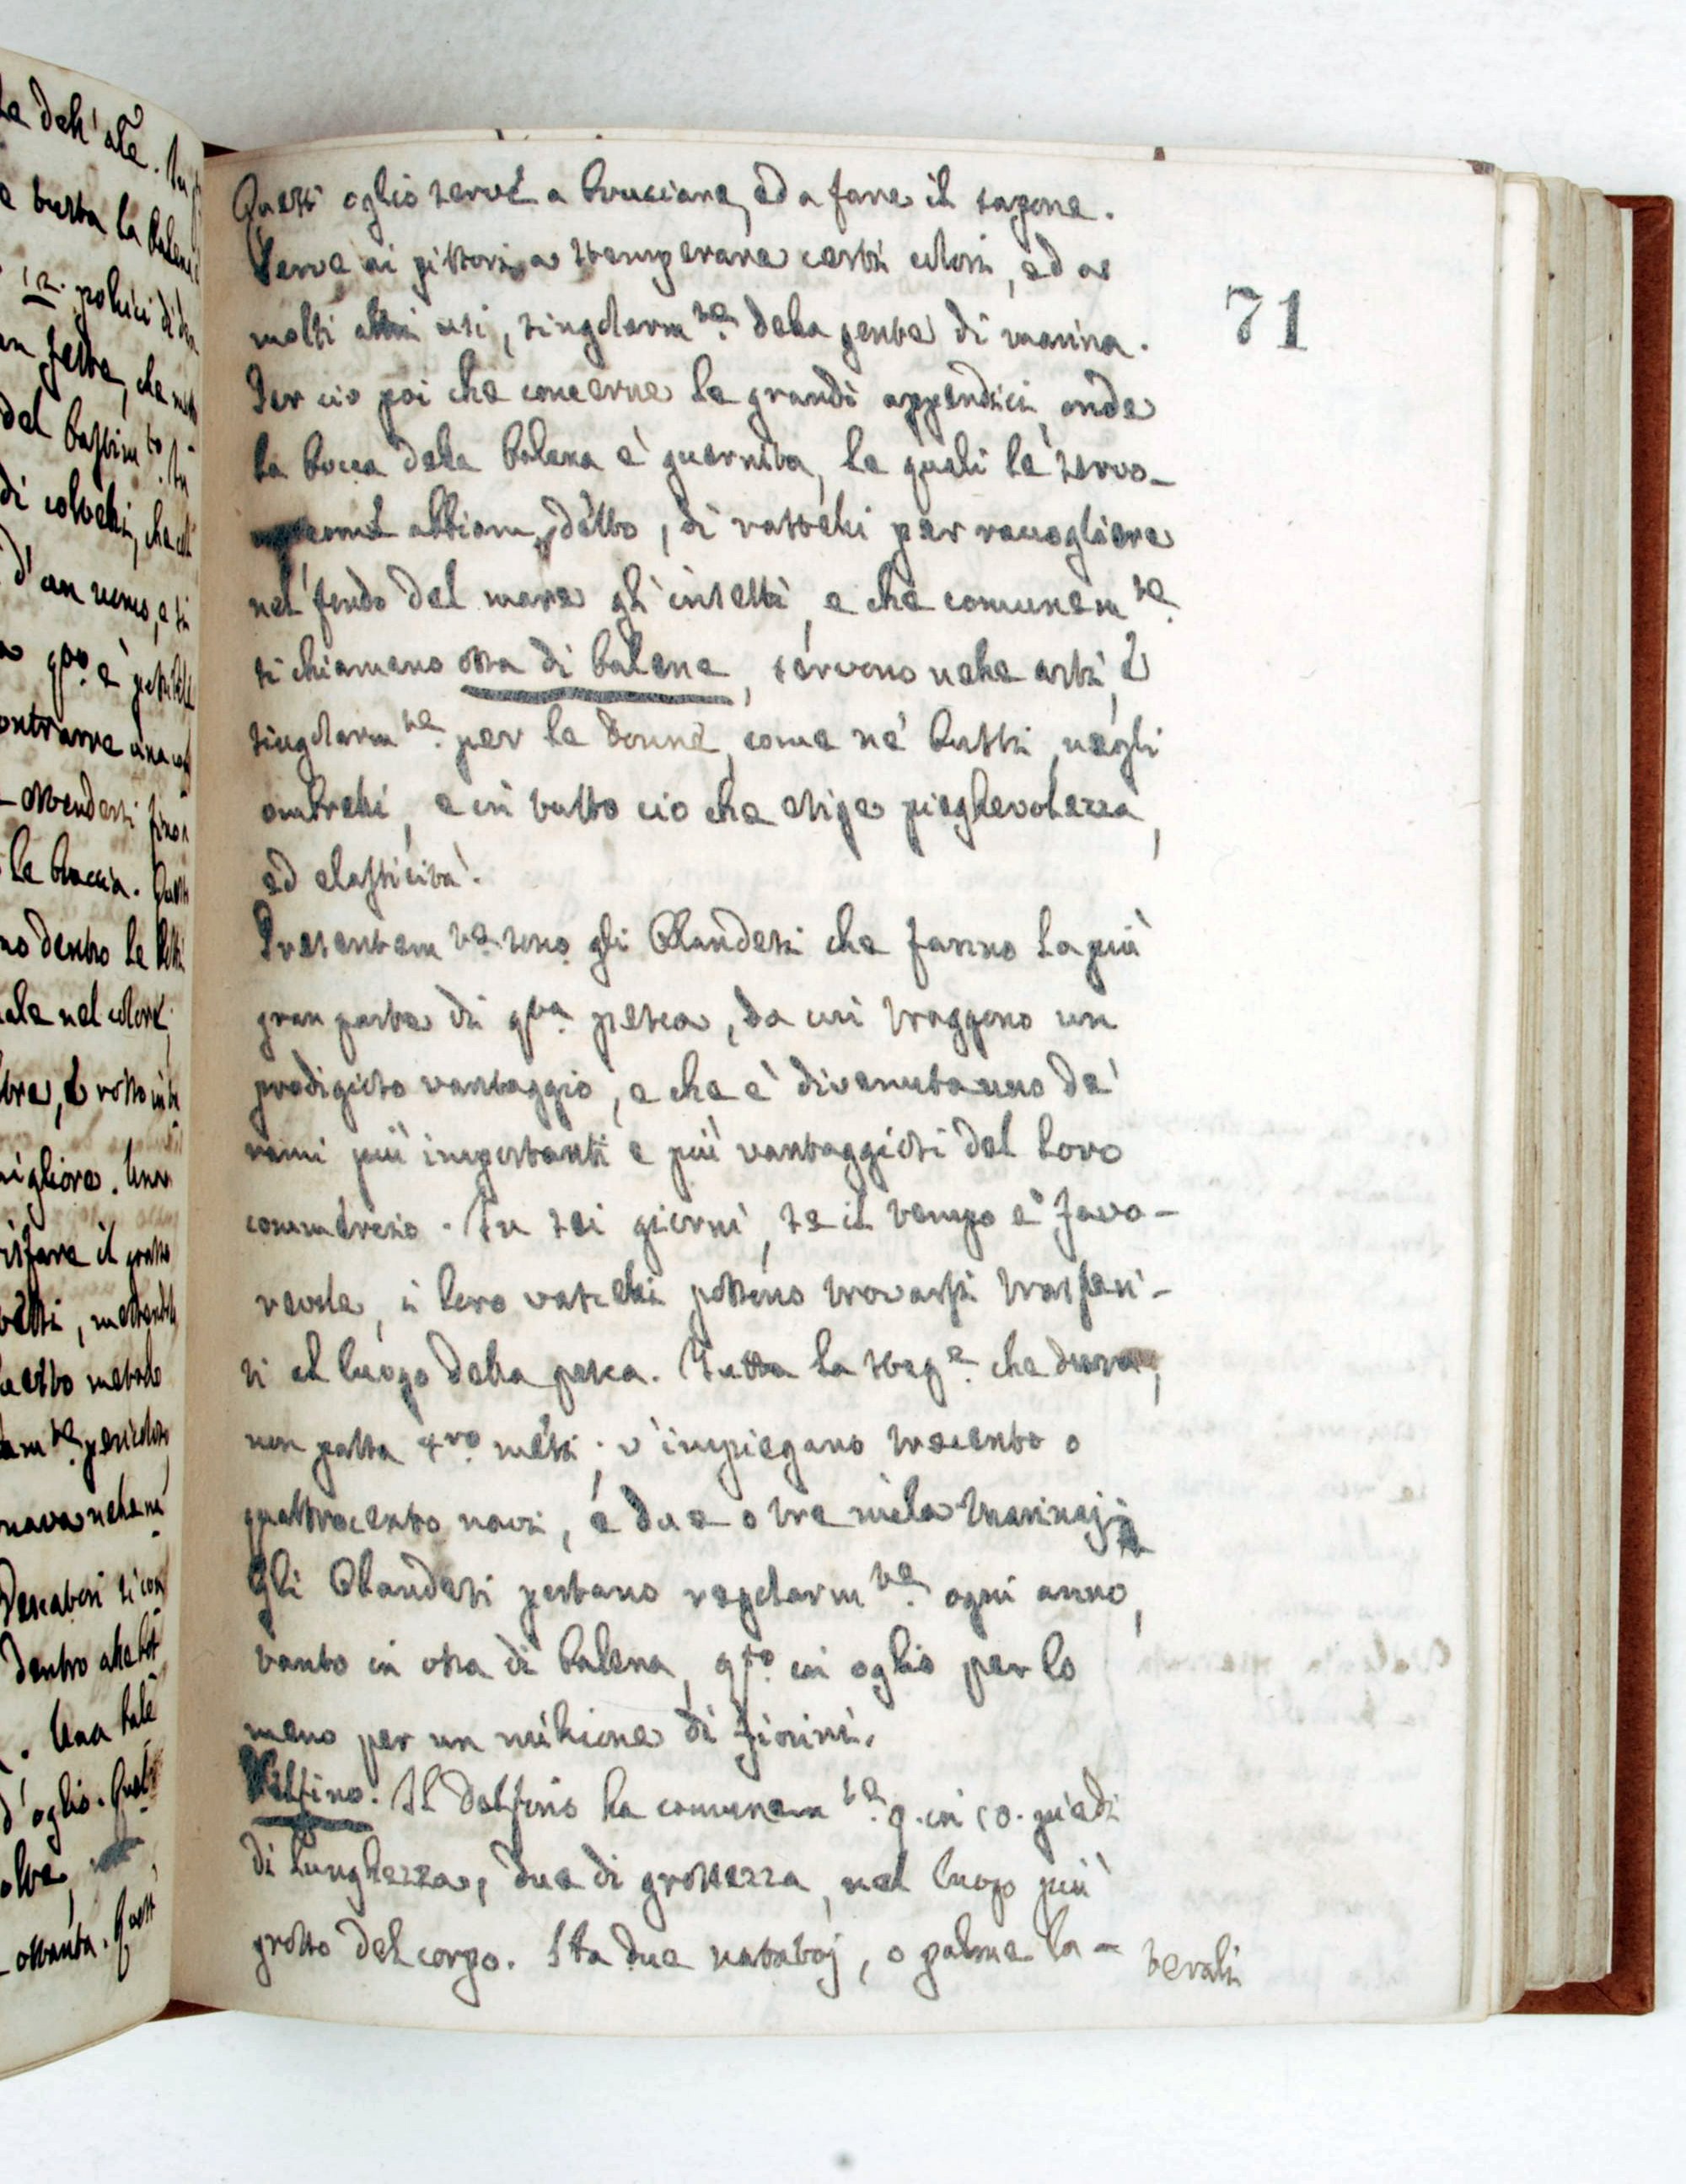 Questo oglio serve a bruciare, ed a fare il sapone.
Serve ai pittori a stemperare certi colori, ed a
molti altri usi, singolarm.te della gente di marina.
Per cio poi che concerne le grandi appendici, onde
la bocca della balena è guernita, le quali le servo-
come abbiam detto, di rastrelli per raccogliere
nel fondo del mare gl'insetti, e che comunem.te
si chiamano ossa di balena, servono nelle arti, e
singolarm.te per le donne, come ne' busti, negli
ombrelli, e in tutto cio che esige pieghevolezza,
ed elasticità.
Presentem.te sono gli Ollandesi che fanno la più
gran parte di q.ta pesca, da cui traggono un
prodigioso vantaggio, e che è divenuta uno de'
rami più importanti e più vantaggiosi del loro
commercio. In sei giorni, se il tempo è favo-
revole, i loro vascelli possono trovarsi trasferi-
ti al luogo della pesca. Tutta la stag.e che dura,
non passa 4.ro mesi; v'impiegano trecento o
quattrocento navi, e due o tre mila marinaj.
Gli Olandesi pestano regolarm.te ogni anno,
tanto in ossa di balena, q.to in oglio per lo
meno per un milione di fiorini.
Delfino. Il delfino ha comunem.te 9. in 10. piedi
di lunghezza, due di grossezza, nel luogo più
grosso del corpo. Ha due natatoj, o palme la-
terali
71